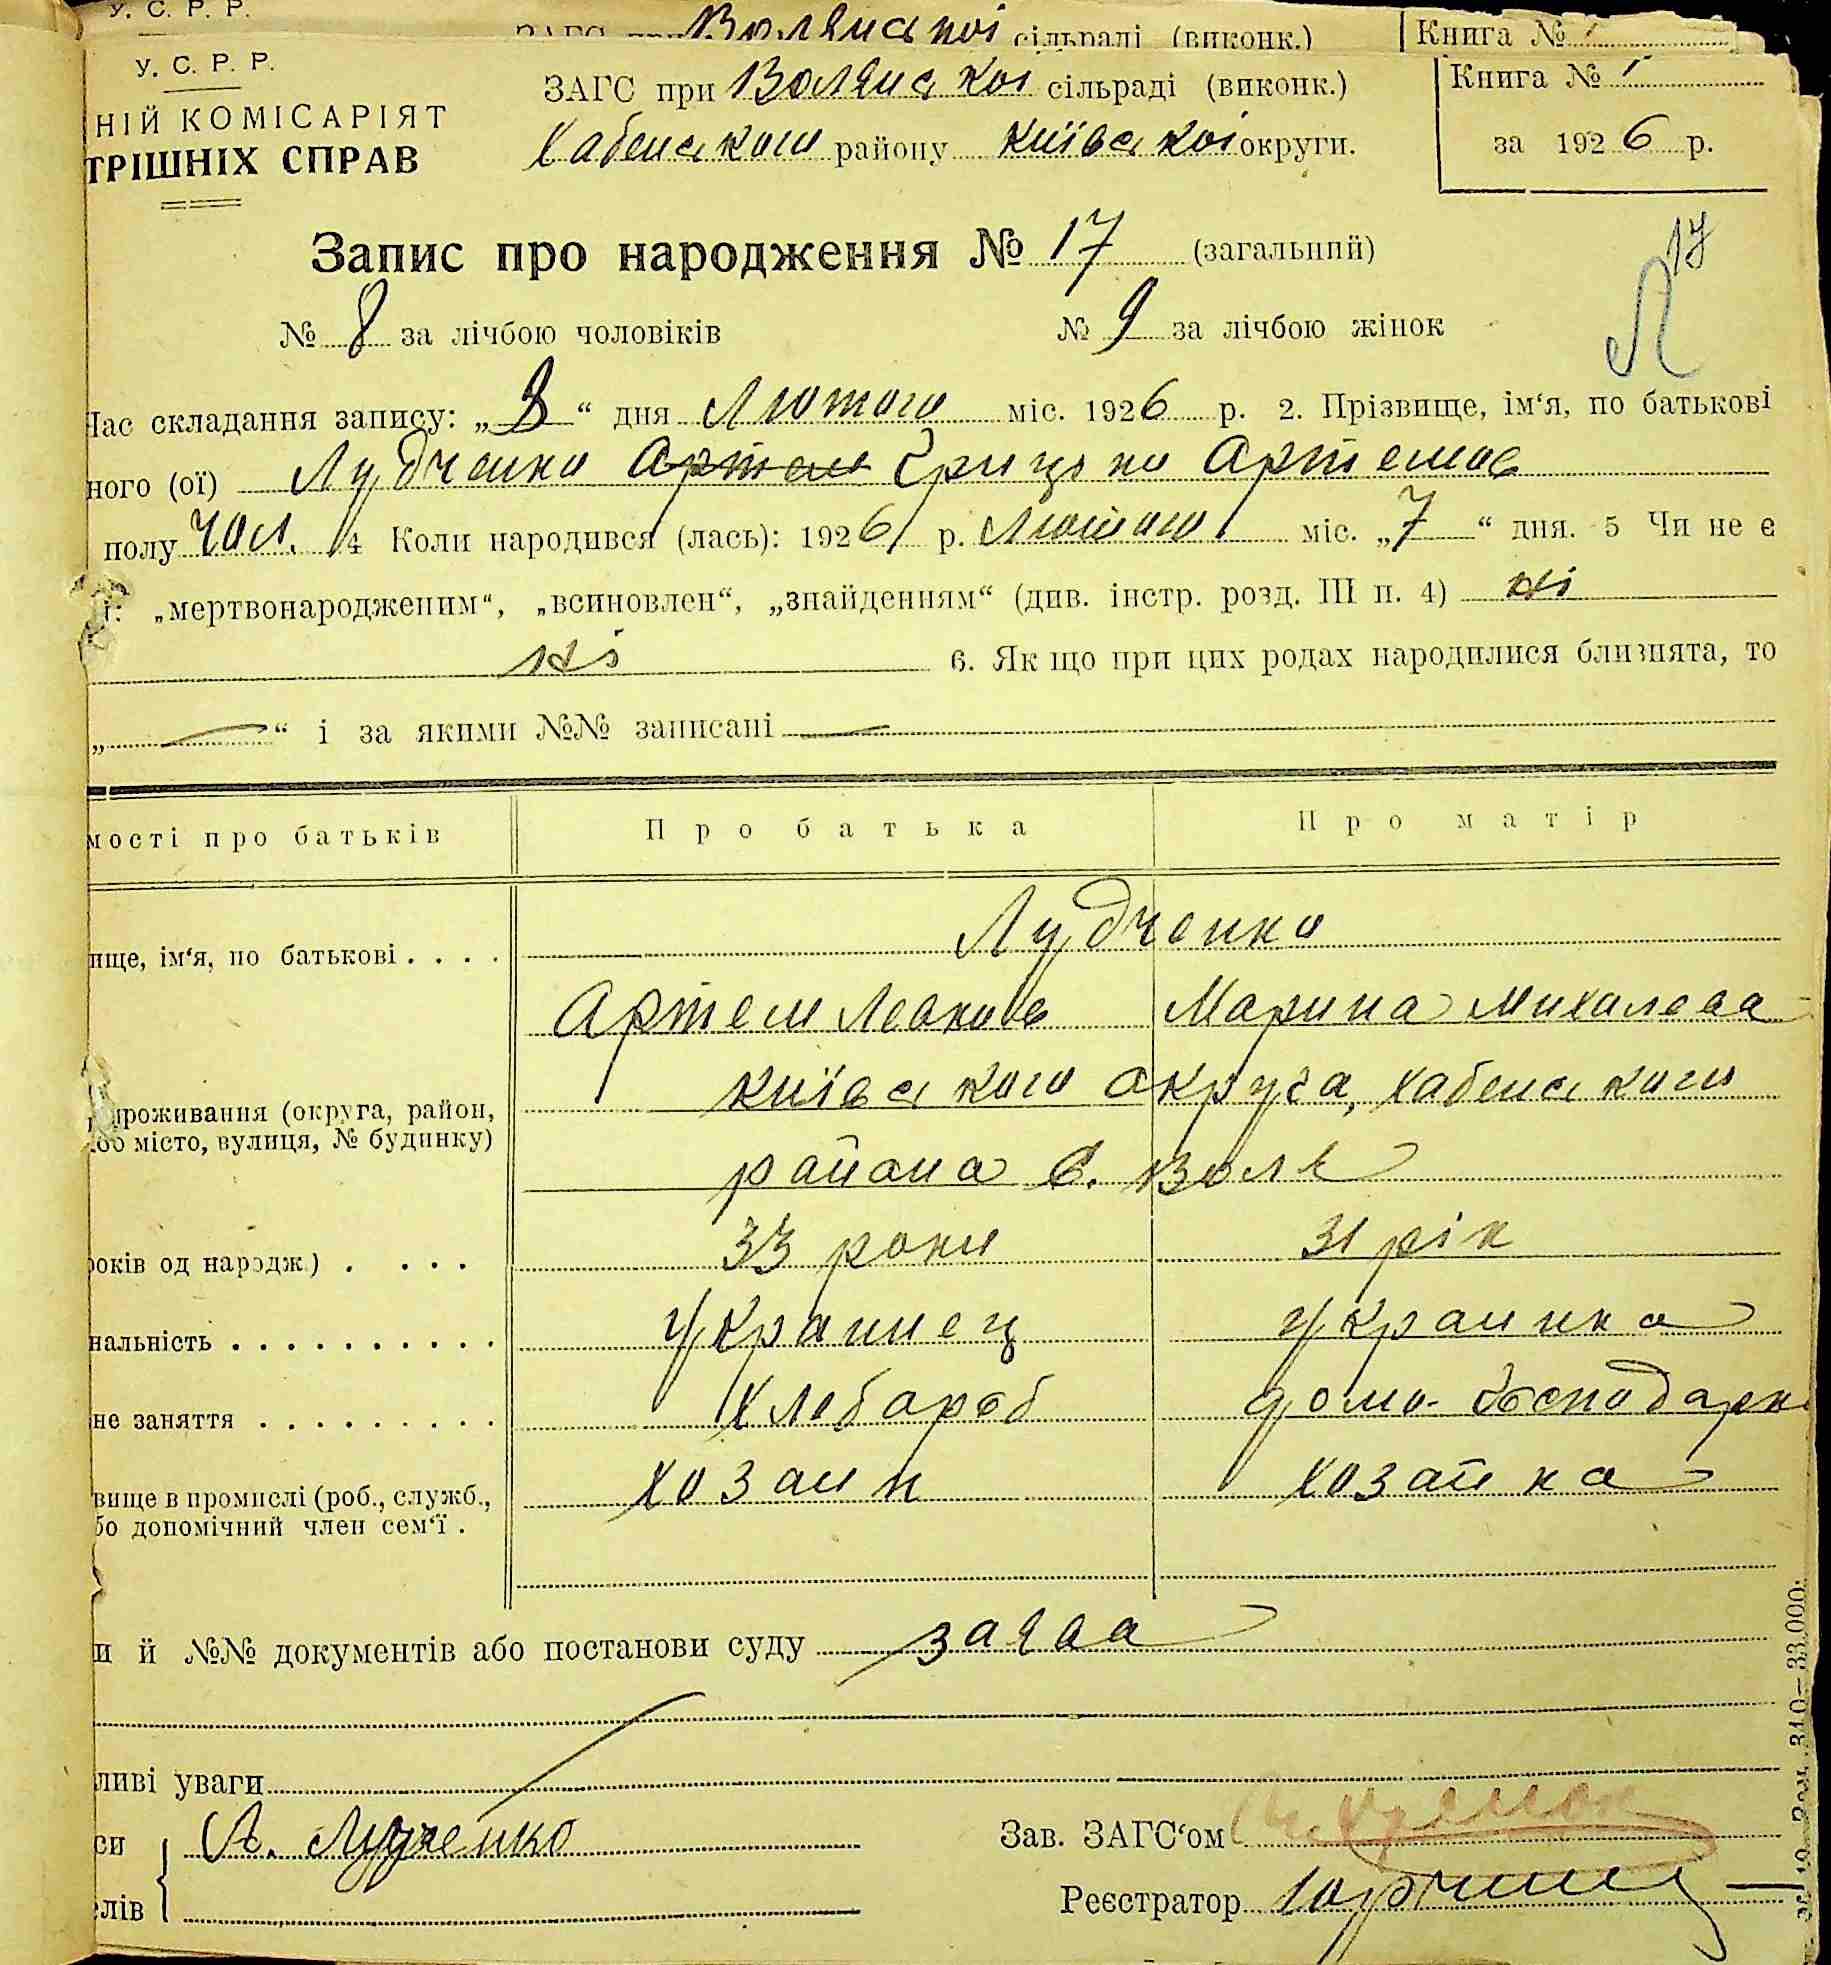 У. С. Р. Р.
Волянської сільраді (виконк.) Книга №
У. С. Р. Р.
ЗАГС при Волянської сільраді (виконк.) Книга № 1
НІЙ КОМІСАРІЯТ
Хабенського району Київської округи. за 1926 р.
ТРІШНІХ СПРАВ
Запис про народження № 17 (загальний)
17
Л
№ 8 за лічбою чоловіків № 9 за лічбою жінок
Час складання запису: „8“ дня Лютого міс. 1926 р. 2. Прізвище, ім‘я, по батькові
ного (ої) Лудченко Артем Грицько Артемов
полу чол. 4 Коли народився (лась): 1926 р. Лютого міс. „7“ дня. 5 Чи не є
і: „мертвонародженим“, „всиновлен“, „знайденням“ (див. інстр. розд. III п. 4) ні
ні 6. Як що при цих родах народилися близнята, то
„ — “ і за якими №№ записані —
мості про батьків Про батька Про матір
Лудченко
ище, ім‘я, по батькові . . . .
Артем Леонов Марина Михалева
Київського округа, Хабенського
проживання (округа, район,
бо місто, вулиця, № будинку)
района с. Воля
33 роки 31 рік
років од народж.) . . . .
Украинец Украинка
нальність . . . . . . . . . .
Хлебороб домо-господарк
не заняття . . . . . . . . .
хозаин хозайка
вище в промислі (роб., служб.,
бо допомічний член сем‘ї .
и й №№ документів або постанови суду заява
ливі уваги
си А. Лудченко Зав. ЗАГС‘ом
елів Реєстратор
310—33.000.